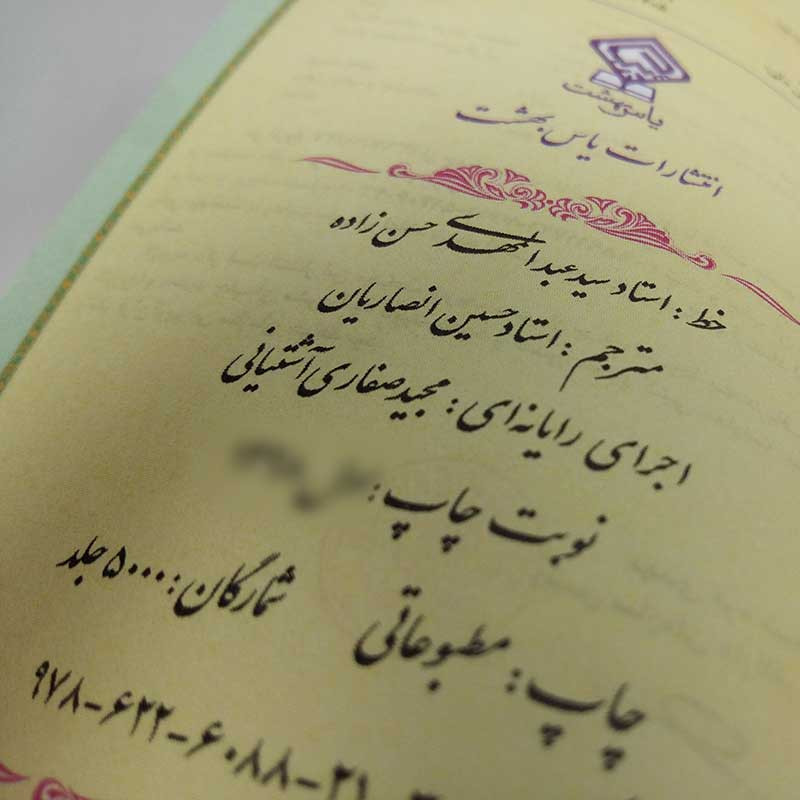 یاس بهشت
انتشارات یاس بهشت
خط : استاد سید عبدالمهدی حسن زاده
مترجم : استاد حسین انصاریان
اجرای رایانه‌ای : مجید صفاری آشتیانی
نوبت چاپ :
چاپ : مطبوعاتی شمارگان : ۵۰۰۰ جلد
۹۷۸-۶۲۲-۶۰۸۸-۲۱